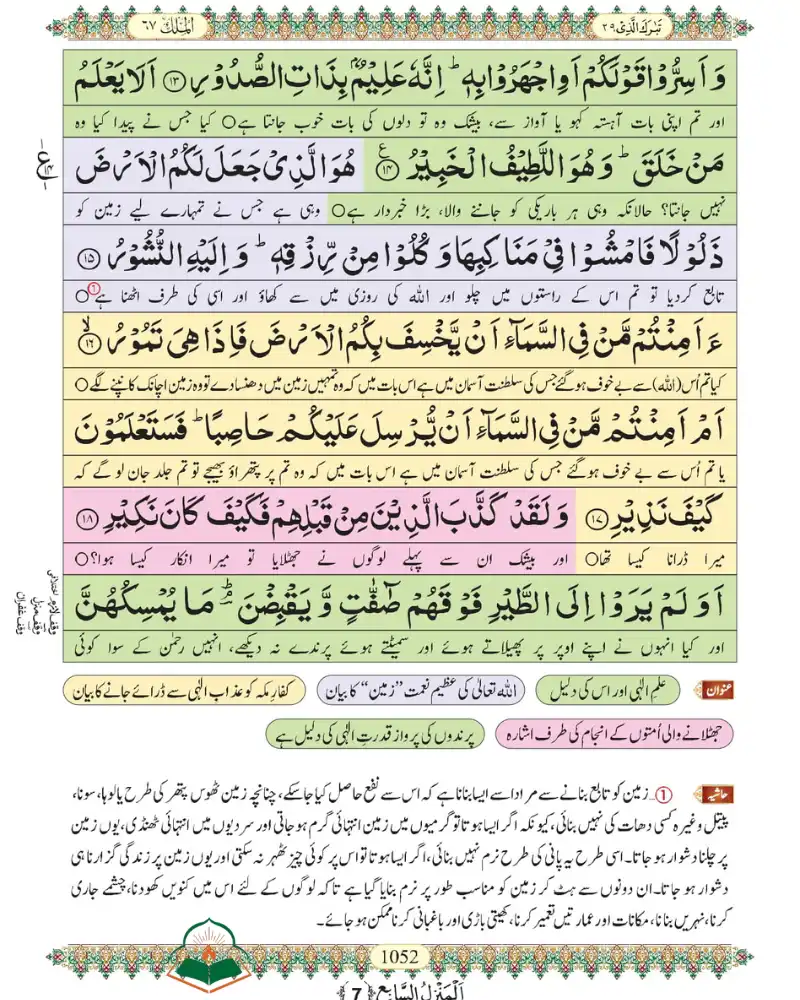 تَبٰرَكَ الَّذِیْ ٢٩
اَلْمُلْك ٦٧
وَ اَسِرُّوْا قَوْلَكُمْ اَوِ اجْهَرُوْا بِهٖؕ اِنَّهٗ عَلِیْمٌۢ بِذَاتِ الصُّدُوْرِ ﴿١٣﴾ اَلَا یَعْلَمُ
اور تم اپنی بات آہستہ کہو یا آواز سے، بیشک وہ تو دلوں کی بات خوب جانتا ہے○ کیا جس نے پیدا کیا وہ
مَنْ خَلَقَؕ وَ هُوَ اللَّطِیْفُ الْخَبِیْرُ ﴿١٤﴾ هُوَ الَّذِیْ جَعَلَ لَكُمُ الْاَرْضَ
نہیں جانتا؟ حالانکہ وہی ہر باریکی کو جاننے والا، بڑا خبردار ہے○ وہی ہے جس نے تمہارے لیے زمین کو
ذَلُوْلًا فَامْشُوْا فِیْ مَنَاكِبِهَا وَ كُلُوْا مِنْ رِّزْقِهٖؕ وَ اِلَیْهِ النُّشُوْرُ ﴿١٥﴾
تابع کردیا تو تم اس کے راستوں میں چلو اور اللہ کی روزی میں سے کھاؤ اور اسی کی طرف اٹھنا ہے①○
ءَاَمِنْتُمْ مَّنْ فِی السَّمَآءِ اَنْ یَّخْسِفَ بِكُمُ الْاَرْضَ فَاِذَا هِیَ تَمُوْرُۙ ﴿١٦﴾
کیا تم اُس (اللہ) سے بے خوف ہوگئے جس کی سلطنت آسمان میں ہے اس بات میں کہ وہ تمہیں زمین میں دھنسا دے تو وہ زمین اچانک کانپنے لگے○
اَمْ اَمِنْتُمْ مَّنْ فِی السَّمَآءِ اَنْ یُّرْسِلَ عَلَیْكُمْ حَاصِبًاؕ فَسَتَعْلَمُوْنَ
یا تم اُس سے بے خوف ہوگئے جس کی سلطنت آسمان میں ہے اس بات میں کہ وہ تم پر پتھراؤ بھیجے تو تم جلد جان لو گے کہ
كَیْفَ نَذِیْرِ ﴿١٧﴾ وَ لَقَدْ كَذَّبَ الَّذِیْنَ مِنْ قَبْلِهِمْ فَكَیْفَ كَانَ نَكِیْرِ ﴿١٨﴾
میرا ڈرانا کیسا تھا○ اور بیشک ان سے پہلے لوگوں نے جھٹلایا تو میرا انکار کیسا ہوا؟○
اَوَ لَمْ یَرَوْا اِلَى الطَّیْرِ فَوْقَهُمْ صٰٓفّٰتٍ وَّ یَقْبِضْنَ مَا یُمْسِكُهُنَّ
اور کیا انہوں نے اپنے اوپر پر پھیلاتے ہوئے اور سمیٹتے ہوئے پرندے نہ دیکھے، انہیں رحمٰن کے سوا کوئی
عنوان
علمِ الٰہی اور اس کی دلیل
اللہ تعالیٰ کی عظیم نعمت ”زمین“ کا بیان
کفارِ مکہ کو عذابِ الٰہی سے ڈرائے جانے کا بیان
جھٹلانے والی اُمتوں کے انجام کی طرف اشارہ
پرندوں کی پرواز قدرتِ الٰہی کی دلیل ہے
حاشیہ
①... زمین کو تابع بنانے سے مراد اسے ایسا بنانا ہے کہ اس سے نفع حاصل کیا جاسکے، چنانچہ زمین ٹھوس پتھر کی طرح یا لوہا، سونا،
پیتل وغیرہ کسی دھات کی نہیں بنائی، کیونکہ اگر ایسا ہوتا تو گرمیوں میں زمین انتہائی گرم ہوجاتی اور سردیوں میں انتہائی ٹھنڈی، یوں زمین
پر چلنا دشوار ہو جاتا۔ اسی طرح یہ پانی کی طرح نرم نہیں بنائی، اگر ایسا ہوتا تو اس پر کوئی چیز ٹھہر نہ سکتی اور یوں زمین پر زندگی گزارنا ہی
دشوار ہو جاتا۔ ان دونوں سے ہٹ کر زمین کو مناسب طور پر نرم بنایا گیا ہے تاکہ لوگوں کے لئے اس میں کنویں کھودنا، چشمے جاری
کرنا، نہریں بنانا، مکانات اور عمارتیں تعمیر کرنا، کھیتی باڑی اور باغبانی کرنا ممکن ہو جائے۔
1052
اَلْمَنْزِلُ السَّابِع ﴿7﴾